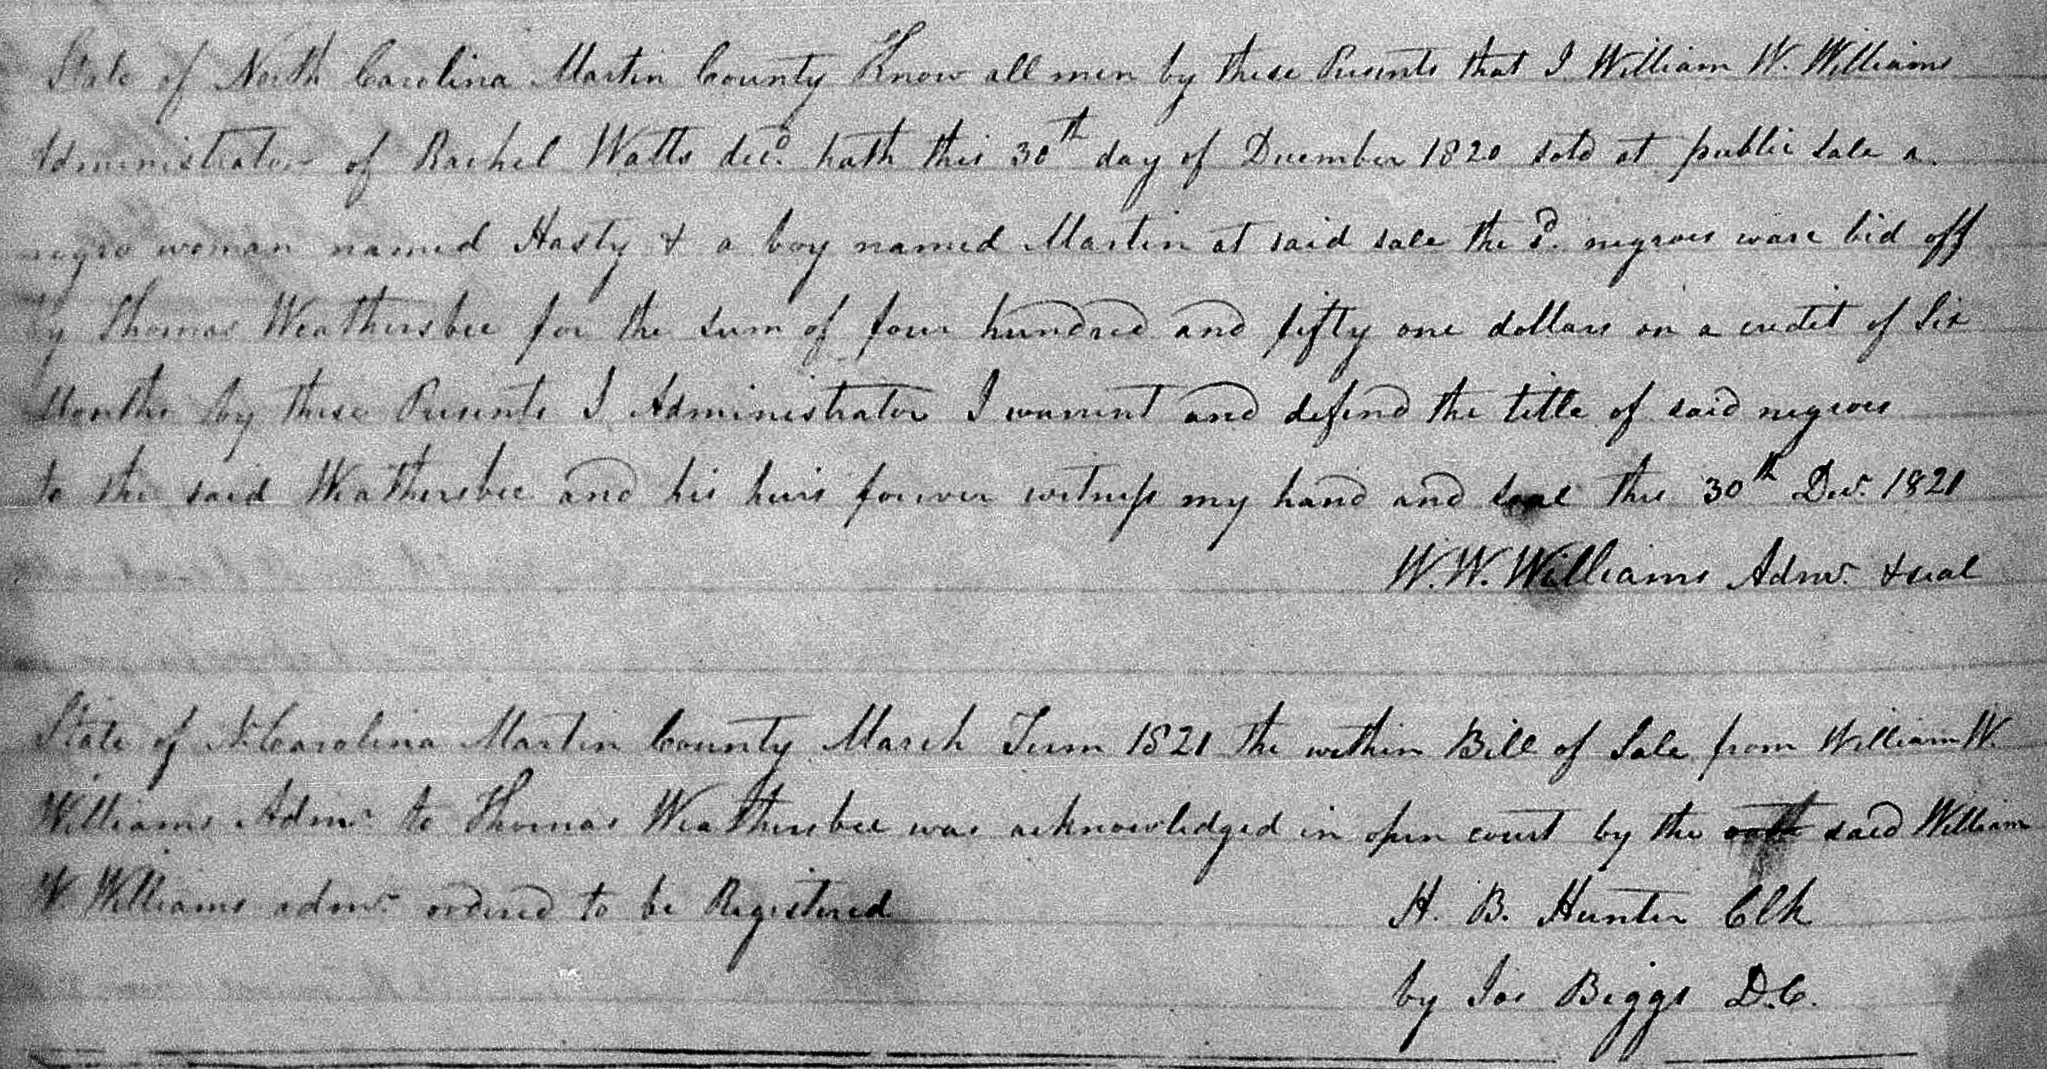 State of North Carolina Martin County Know all men by these Presents that I William W. Williams
Administrator of Rachel Watts decd. hath this 30th day of December 1820 sold at public sale a
negro woman named Hasty & a boy named Martin at said sale the sd. negroes ware bid off
by Thomas Weathersbee for the sum of four hundred and fifty one dollars on a credit of Six
Months by these Presents I Administrator I warrent and defend the title of said negroes
to the said Weathersbee and his heirs forever witness my hand and seal this 30th Decr. 1821
W. W. Williams Admr. & seal
State of N. Carolina Martin County March Term 1821 the within Bill of Sale from William W.
Williams Admr. to Thomas Weathersbee was acknowledged in open court by the oath said William
W Williams admr. ordered to be Registered
H. B. Hunter Clk
by Jos Biggs D.C.